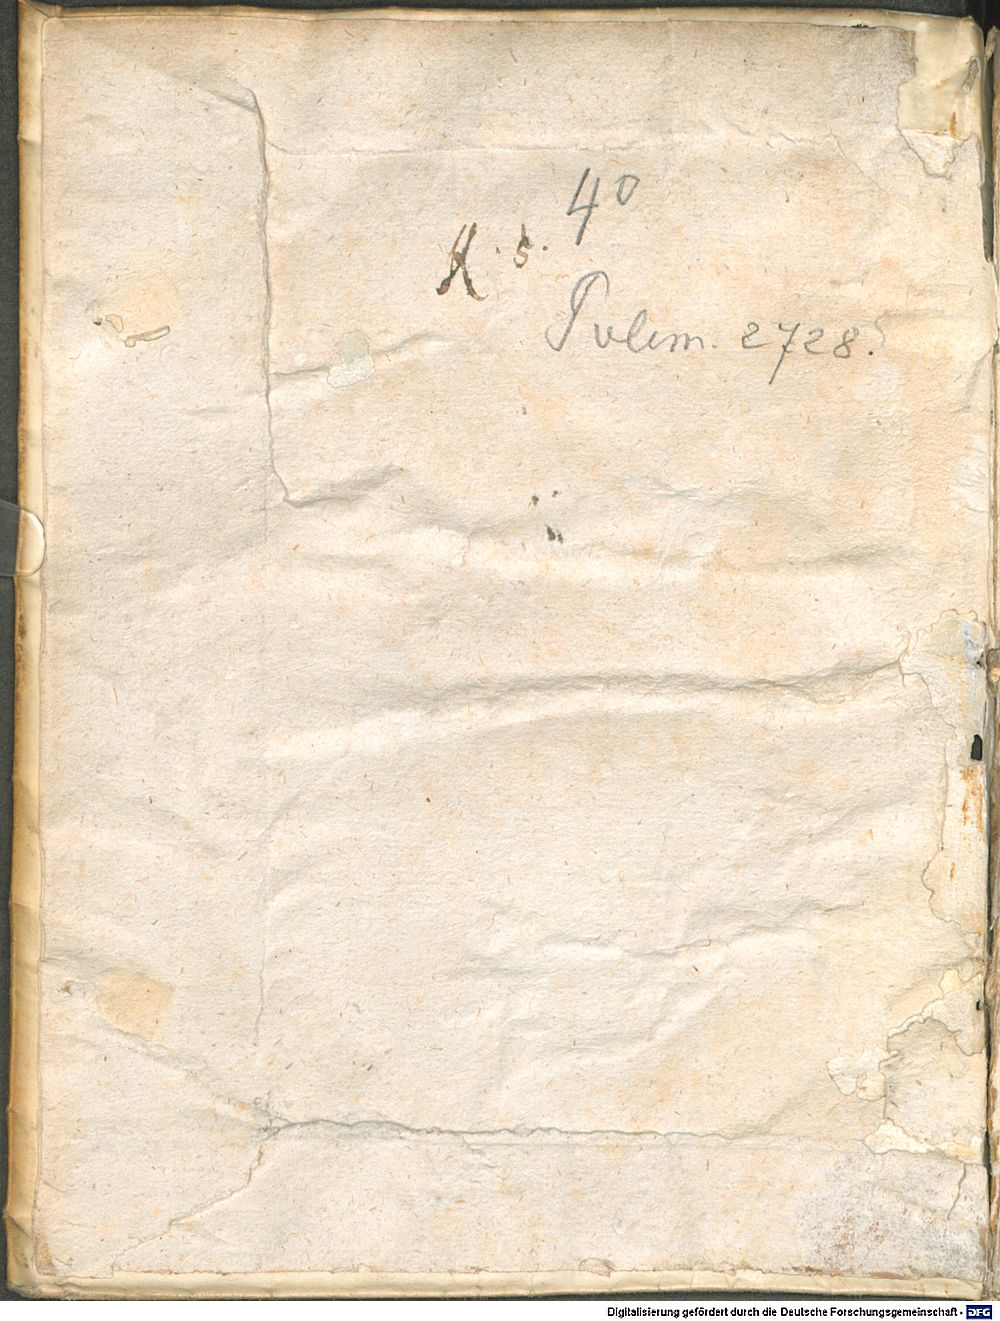 4°
K. 5.
Polem. 2728.
Digitalisierung gefördert durch die Deutsche Forschungsgemeinschaft - DFG